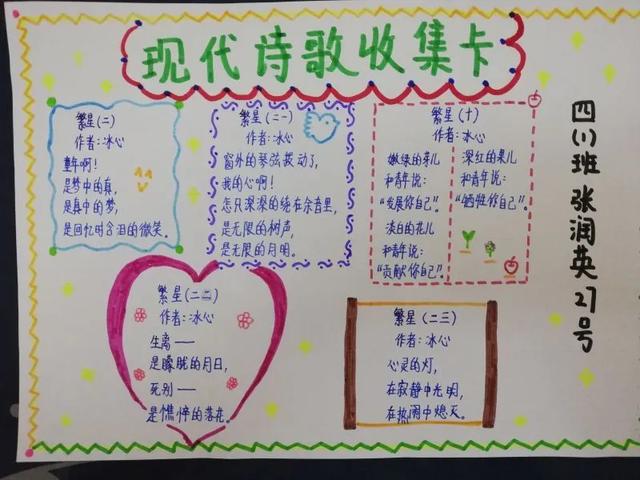 现代诗歌收集卡
繁星（二）
作者：冰心
童年啊！
是梦中的真，
是真中的梦，
是回忆时含泪的微笑。
繁星（二一）
作者：冰心
窗外的琴弦拨动了，
我的心啊！
怎只深深的绕在余音里，
是无限的树声，
是无限的月明。
繁星（十）
作者：冰心
嫩绿的芽儿
和青年说：
“发展你自己”。
淡白的花儿
和青年说：
“贡献你自己”。
深红的果儿
和青年说：
“牺牲你自己”。
繁星（二二）
作者：冰心
生离——
是朦胧的月日，
死别——
是憔悴的落花。
繁星（二三）
作者：冰心
心灵的灯，
在寂静中光明，
在热闹中熄灭。
四（1）班 张润英 27号